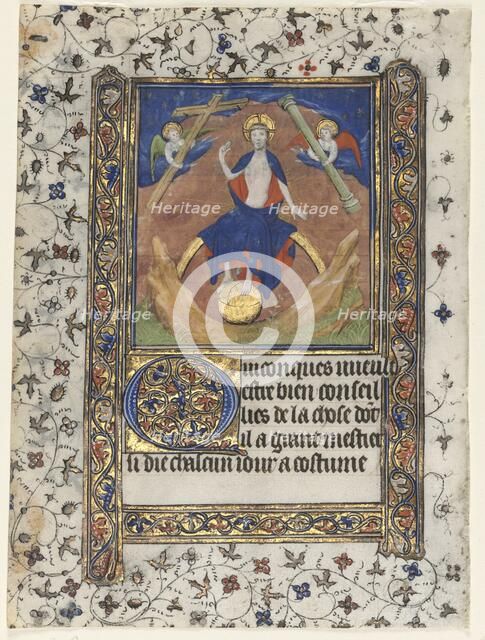 Heritage Heritage
Heritage Heritage
Quiconques vueult
estre bien conseil
lies de la chose dot
il a grant mestier
si die chascun iour a costume